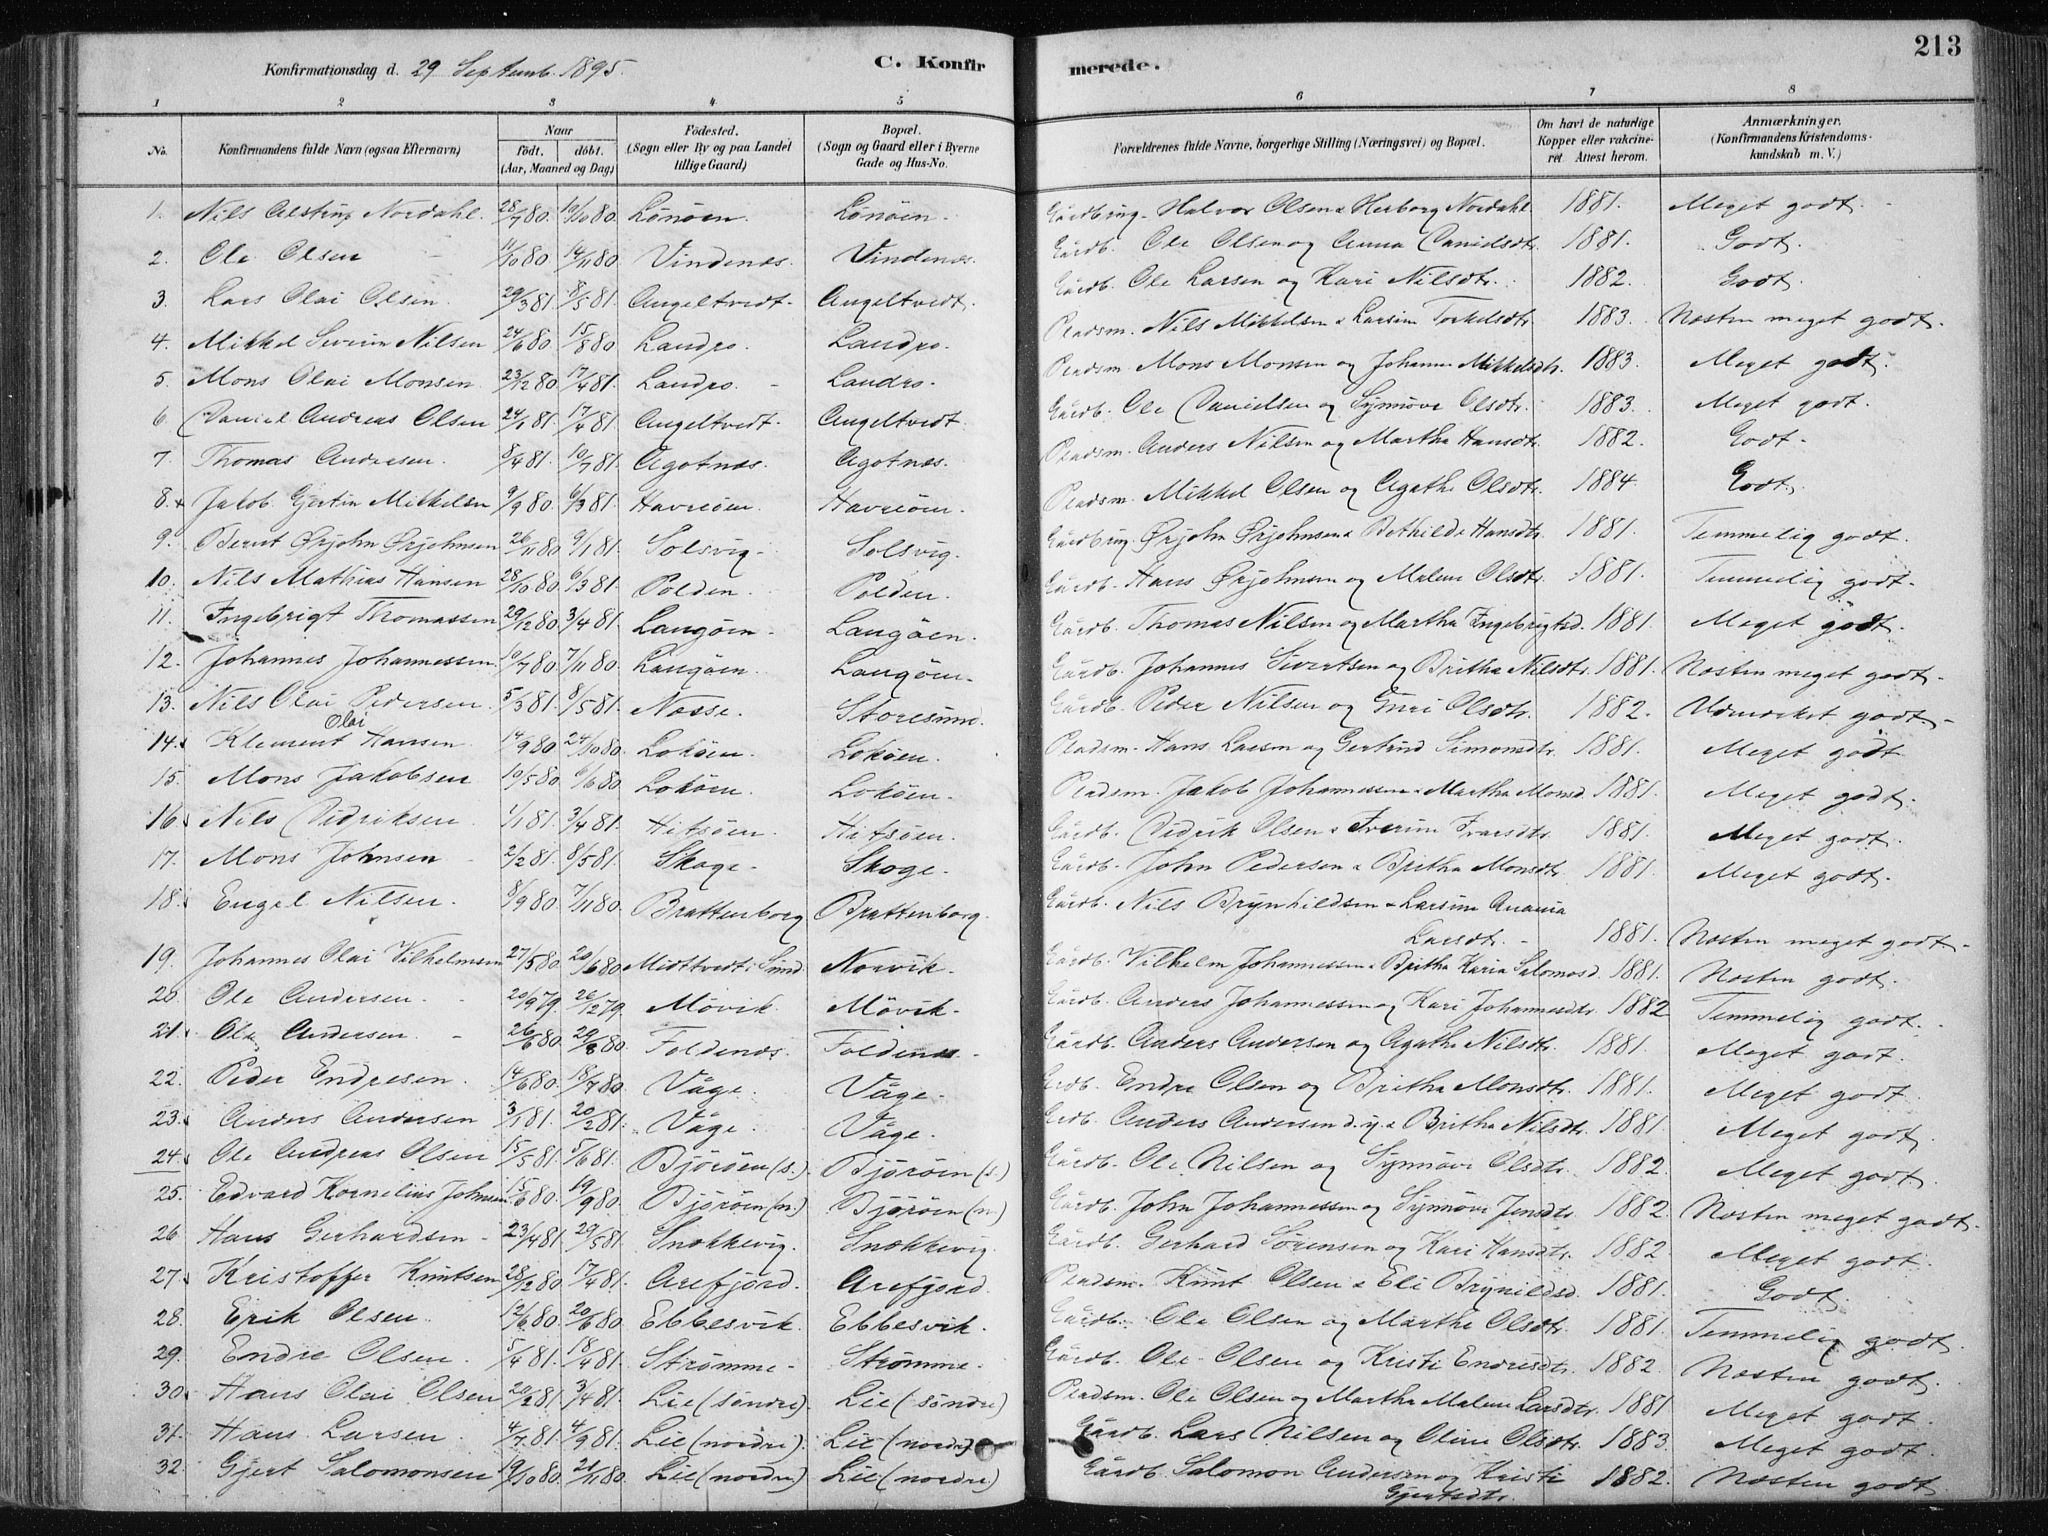 213
Konfirmationsdag d. 29 Septemb. 1895.
C. Konfirmerede.
1 2 3 4 5 6 7 8
No. | Konfirmandens fulde Navn (ogsaa Efternavn) | Naar født. døbt. (Aar, Maaned og Dag) | Fødested. (Sogn eller By og paa Landet tillige Gaard) | Bopæl. (Sogn og Gaard eller i Byerne Gade og Hus-No. | Forældrenes fulde Navne, borgerlige Stilling (Næringsvei) og Bopæl. | Om havt de naturlige Kopper eller vakcineret. Attest herom. | Anmærkninger. (Konfirmandens Kristendomskundskab m. V.)
1. Nils Nordahl. 28/7 80. 10/10 80. Lönöen. Lönöen. Halvor Olsen & Herborg Nordahl. 1881. Meget godt.
2. Ole Olsen 11/10 80. 14/11 80. Vindenæs. Vindenæs. Gårdb. Ole Olsen og Anna Danielsdtr. 1881. Godt.
3. Lars Olai Olsen. 29/3 81. 8/5 81. Angeltvedt. Angeltvedt. Gårdb. Ole Larsen og Kari Nilsdtr. 1882. Godt.
4. Mikkel Severin Nilsen 24/6 80. 15/8 80. Landro. Landro. Pladsm. Nils Mikkelsen & Larsine Torkelsdtr. 1883. Næsten meget godt.
5. Mons Olai Monsen 23/12 80. 17/4 81. Landro. Landro. Pladsm Mons Monsen og Johanne Mikkelsdtr. 1883. Meget godt.
6. Daniel Andreas Olsen 24/1 81. 17/4 81. Angeltvedt. Angeltvedt. Gårdb. Ole Danielsen og Synnöve Olsdtr. 1883. Meget godt.
7. Thomas Andersen. 8/4 81. 10/7 81. Agotnæs. Agotnæs. Pladsm. Anders Nilsen og Martha Hansdtr. 1882. Godt.
8. Jakob Gjertin Mikkelsen 9/9 80. 6/3 81. Havreöen. Havreöen. Pladsm. Mikkel Olsen og Agathe Olsdtr. 1884. Godt.
9. Bernt Ørjohn Ørjohnsen 26/11 80. 9/1 81. Solsvig. Solsvig. Ørjohn Ørjohnsen & Bothilde Hansdtr. 1881. Temmelig godt.
10. Nils Mathias Hansen 28/10 80. 6/3 81. Polden. Polden. Gårdb. Hans Ørjohnsen og Malene Olsdtr. 1881. Temmelig godt.
11. Ingebrigt Thomassen 29/12 80. 3/4 81. Langöen. Langöen. Gårdb. Thomas Nilsen og Martha Ingebrigtsd. 1881. Meget godt.
12. Johannes Johannessen. 10/7 80. 7/11 80. Langöen. Langöen. Gårdb. Johannes Sivertsen og Britha Nilsdtr. 1881. Næsten meget godt.
13. Nils Olai Pedersen 5/3 81. 8/5 81. Næsse. Storesund. Gårdb. Peder Nilsen og Guri Olsdtr. 1882. Udmærket godt.
14. Klement Olai Hansen 14/9 80 24/10 80. Loköen. Loköen. Pladsm. Hans Larsen og Gertrud Simonsdtr. 1881. Meget godt
15. Mons Jakobsen 10/5 80. 6/6 80. Loköen. Loköen. Pladsm. Jakob Johannessen & Martha Monsd. 1881. Meget godt.
16. Nils Didriksen 1/1 81. 3/4 81. Hitsöen. Hitsöen. Gårdb. Didrik Olsen & Iverine Ivarsdtr. 1881. Meget godt.
17. Mons Johnsen 2/2 81. 8/5 81. Skoge. Skoge. Gårdb. John Pedersen & Britha Monsdtr. 1881. Meget godt.
18. Engel Nilsen. 8/9 80. 7/11 80. Brattenborg Brattenborg. Gårdb. Nils Brynhildsen & Larsine Anania
Larsdtr. 1881. Næsten meget godt.
19. Johannes Olai Vilhelmsen 27/5 80. 20/6 80. Midttvedt i Sund Norvik. Gårdb. Vilhelm Johannessen & Britha Karia Salomosd. 1881. Næsten godt.
20. Ole Andersen. 20/9 79. 26/12 79. Mövik. Mövik. Gårdb. Anders Johannessen og Kari Johannesdtr. 1882 Temmelig godt.
21. Ole Andersen. 26/6 80. 29/8 80. Foldenæs. Foldenæs. Gårdb. Anders Andersen og Agathe Nilsdtr. 1881. Meget godt.
22. Peder Endresen. 14/6 80. 18/7 80. Våge. Våge. Grdb. Endre Olsen og Britha Monsdtr. 1881. Meget godt.
23. Anders Andersen 3/1 81. 20/2 81. Våge. Våge. Grdb. Anders Andersen d. y. & Britha Nilsdtr. 1881. Meget godt.
24. Ole Andreas Olsen 15/5 81. 5/6 81. Björöen (s.) Björöen (s.) Gårdb. Ole Nilsen og Synnöve Olsdtr. 1882. Meget godt.
25. Edvard Kornelius Johnsen 15/6 80. 19/9 80. Björöen (n.) Björöen (n.) Gårdb. John Johannessen og Synnöve Jensdtr. 1882. Næsten meget godt.
26. Hans Gerhardsen 23/4 81. 29/5 81. Snekkevig. Snekkevig. Gårdb. Gerhard Sörensen og Kari Hansdtr. 1882. Meget godt.
27. Kristoffer Knutsen 28/12 80. 17/4 81. Arefjord. Arefjord. Pladsm. Knut Olsen & Eli Brynildsd. 1881. Godt.
28. Erik Olsen 12/6 80. 20/6 80. Ebbesvik. Ebbesvik. Gårdb. Ole Olsen og Marthe Olsdtr. 1881. Temmelig godt.
29. Endre Olsen. 5/4 81. 18/4 81. Strömme. Strömme. Gårdb. Ole Olsen og Kristi Endresdtr. 1882. Næsten godt.
30. Hans Olai Olsen 20/2 81. 3/4 81. Lie (söndre). Lie (söndre) Pladsm. Ole Olsen og Martha Malene Larsdtr. 1881. Meget godt.
31. Hans Larsen. 4/7 81. 4/9 81. Lie (nordre). Lie (nordre) Gårdb. Lars Nilsen og Oline Olsdtr. 1883. Meget godt.
32. Gjert Salomonsen 19/10 80. 21/11 80. Lie (nordre) Lie (nordre) Gårdb. Salomon Andersen og Kristi 1882. Næsten godt.
Gjertsdtr.